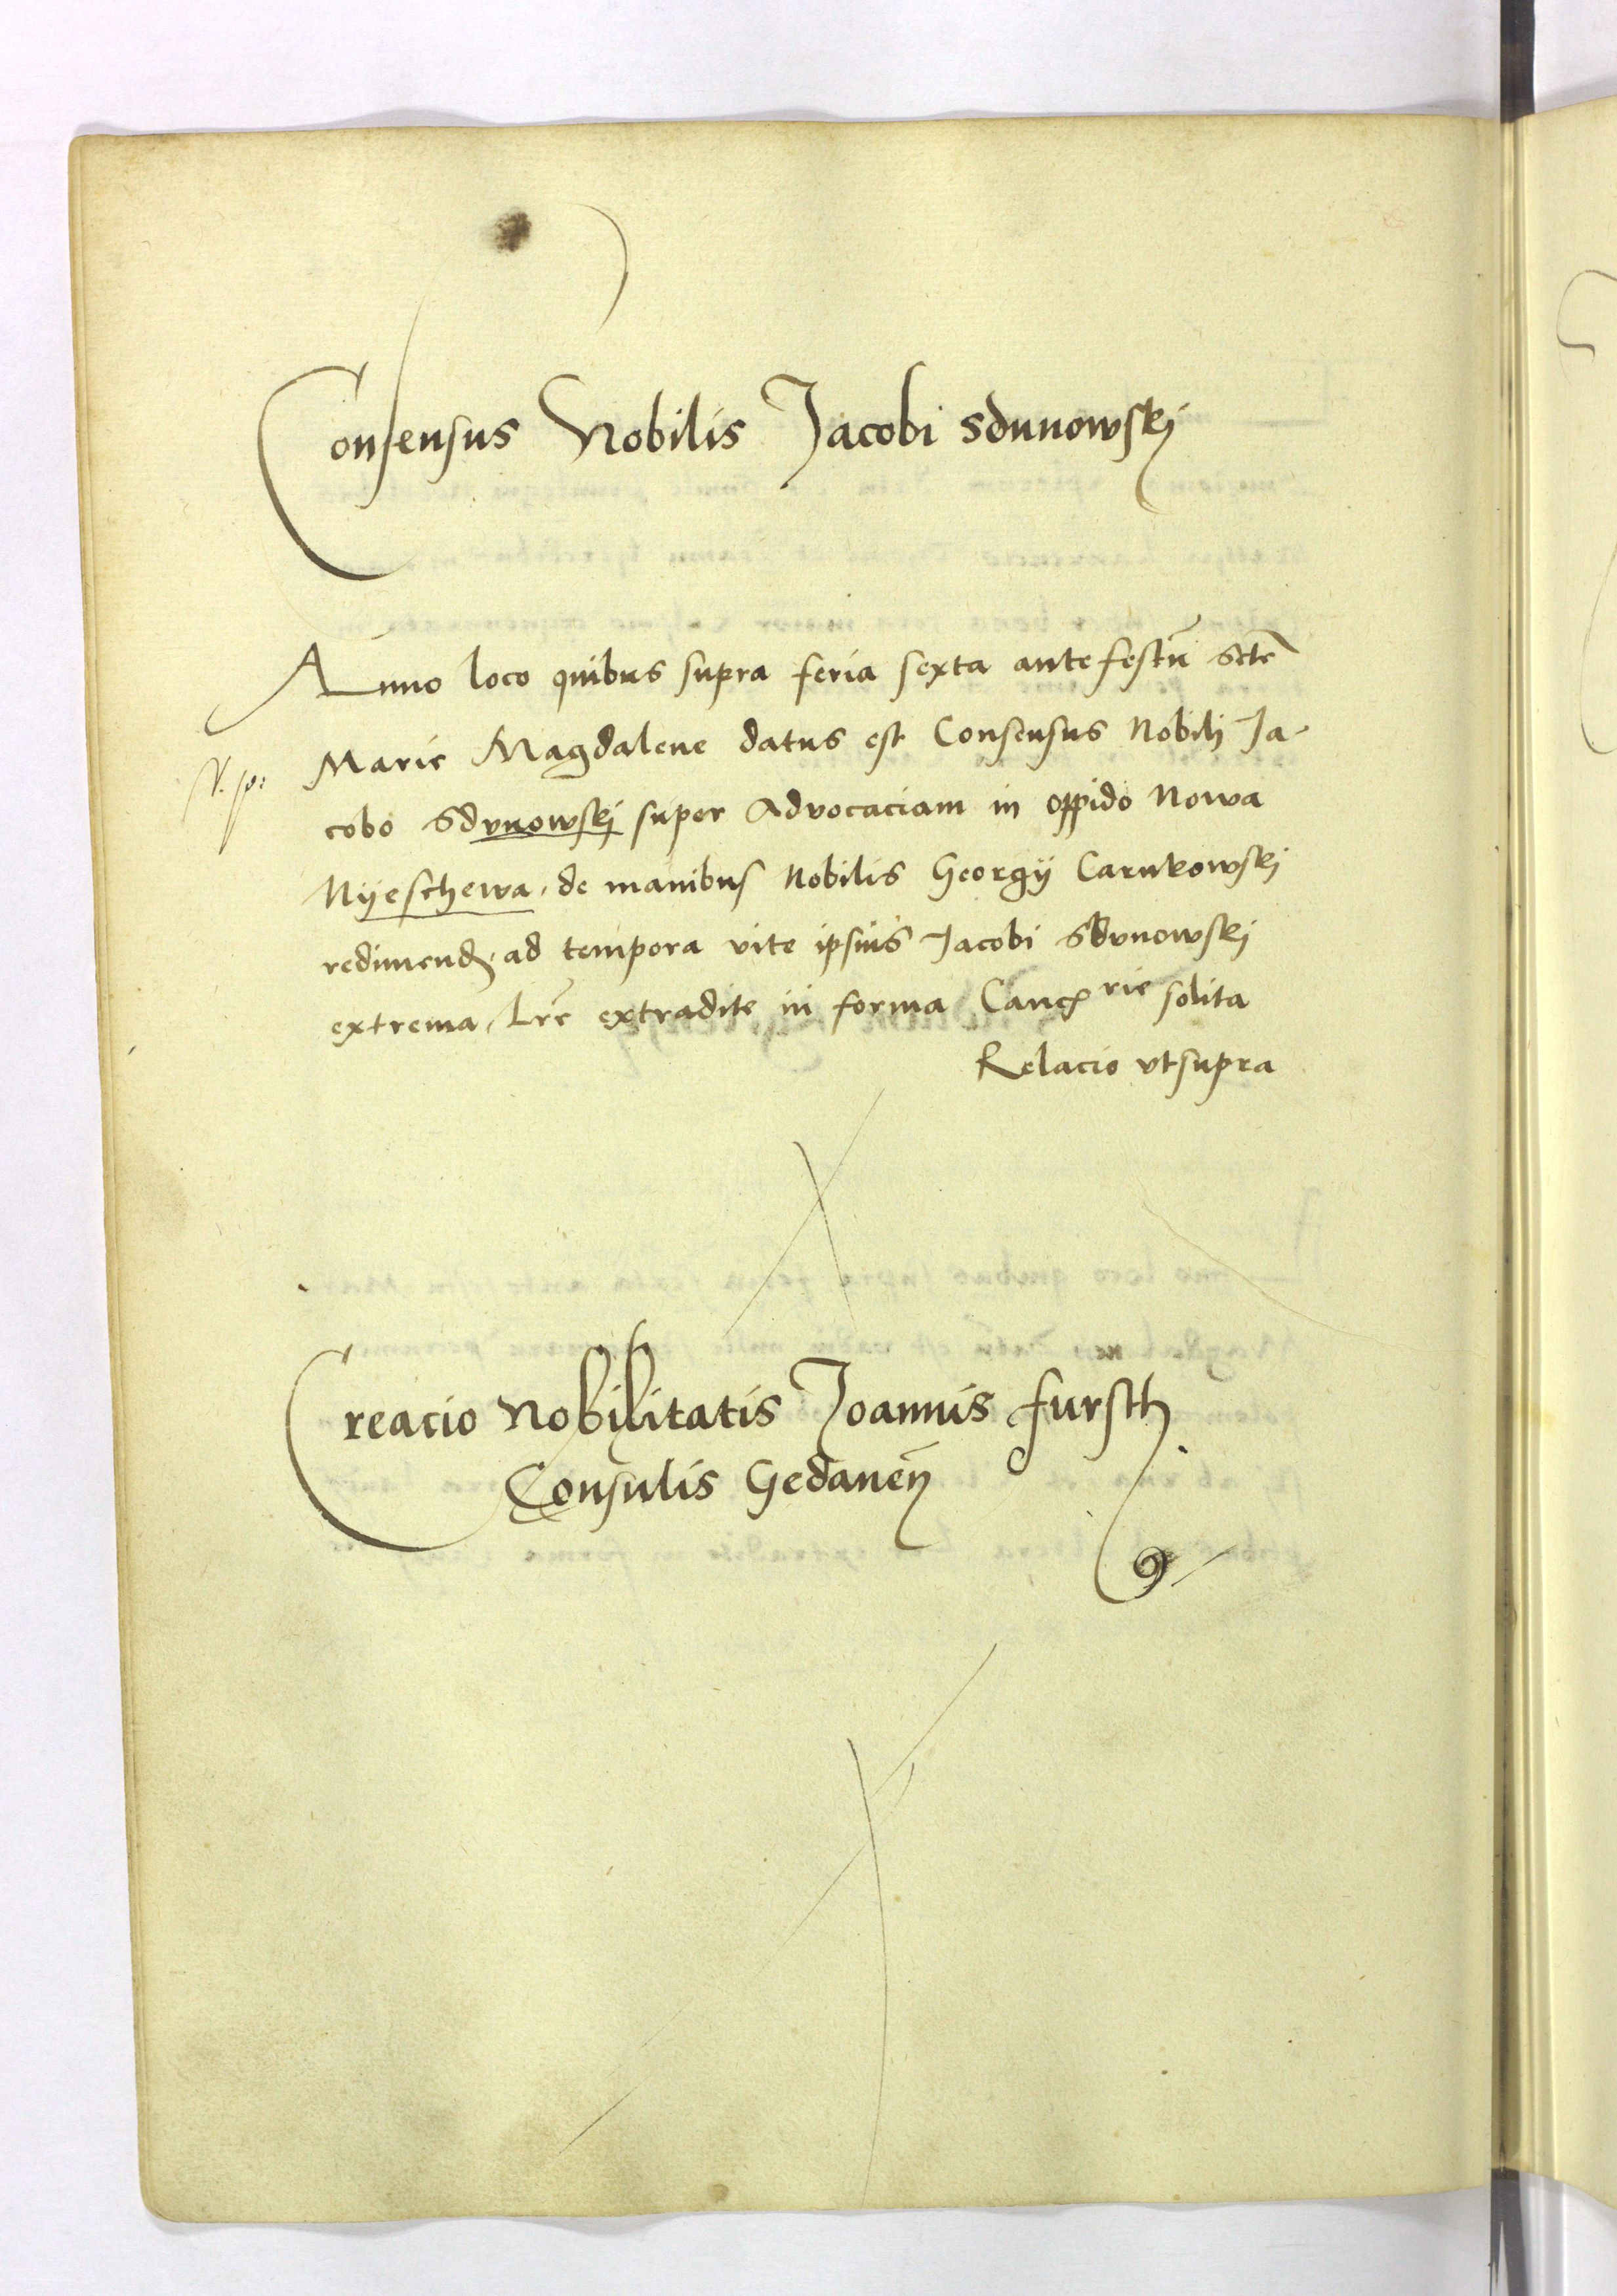 Consensus Nobilis Jacobi Sdunowskj
Anno loco quibus supra feria sexta ante festū Scte
Marie Magdalene datus est Consensus Nobilj Ja-
cobo Sdvnowskj super Advocaciam in oppido Nowa
Nyeschewa, de manibus Nobilis Georgij Carnkowskj
redimend, ad tempora vite ipsius Jacobi Sdvnowskj
extrema, Lre extradite in forma Canc rie solita
Relacio vt supra
Creacio Nobilitatis Joannis fursth
Consulis Gedaneñ